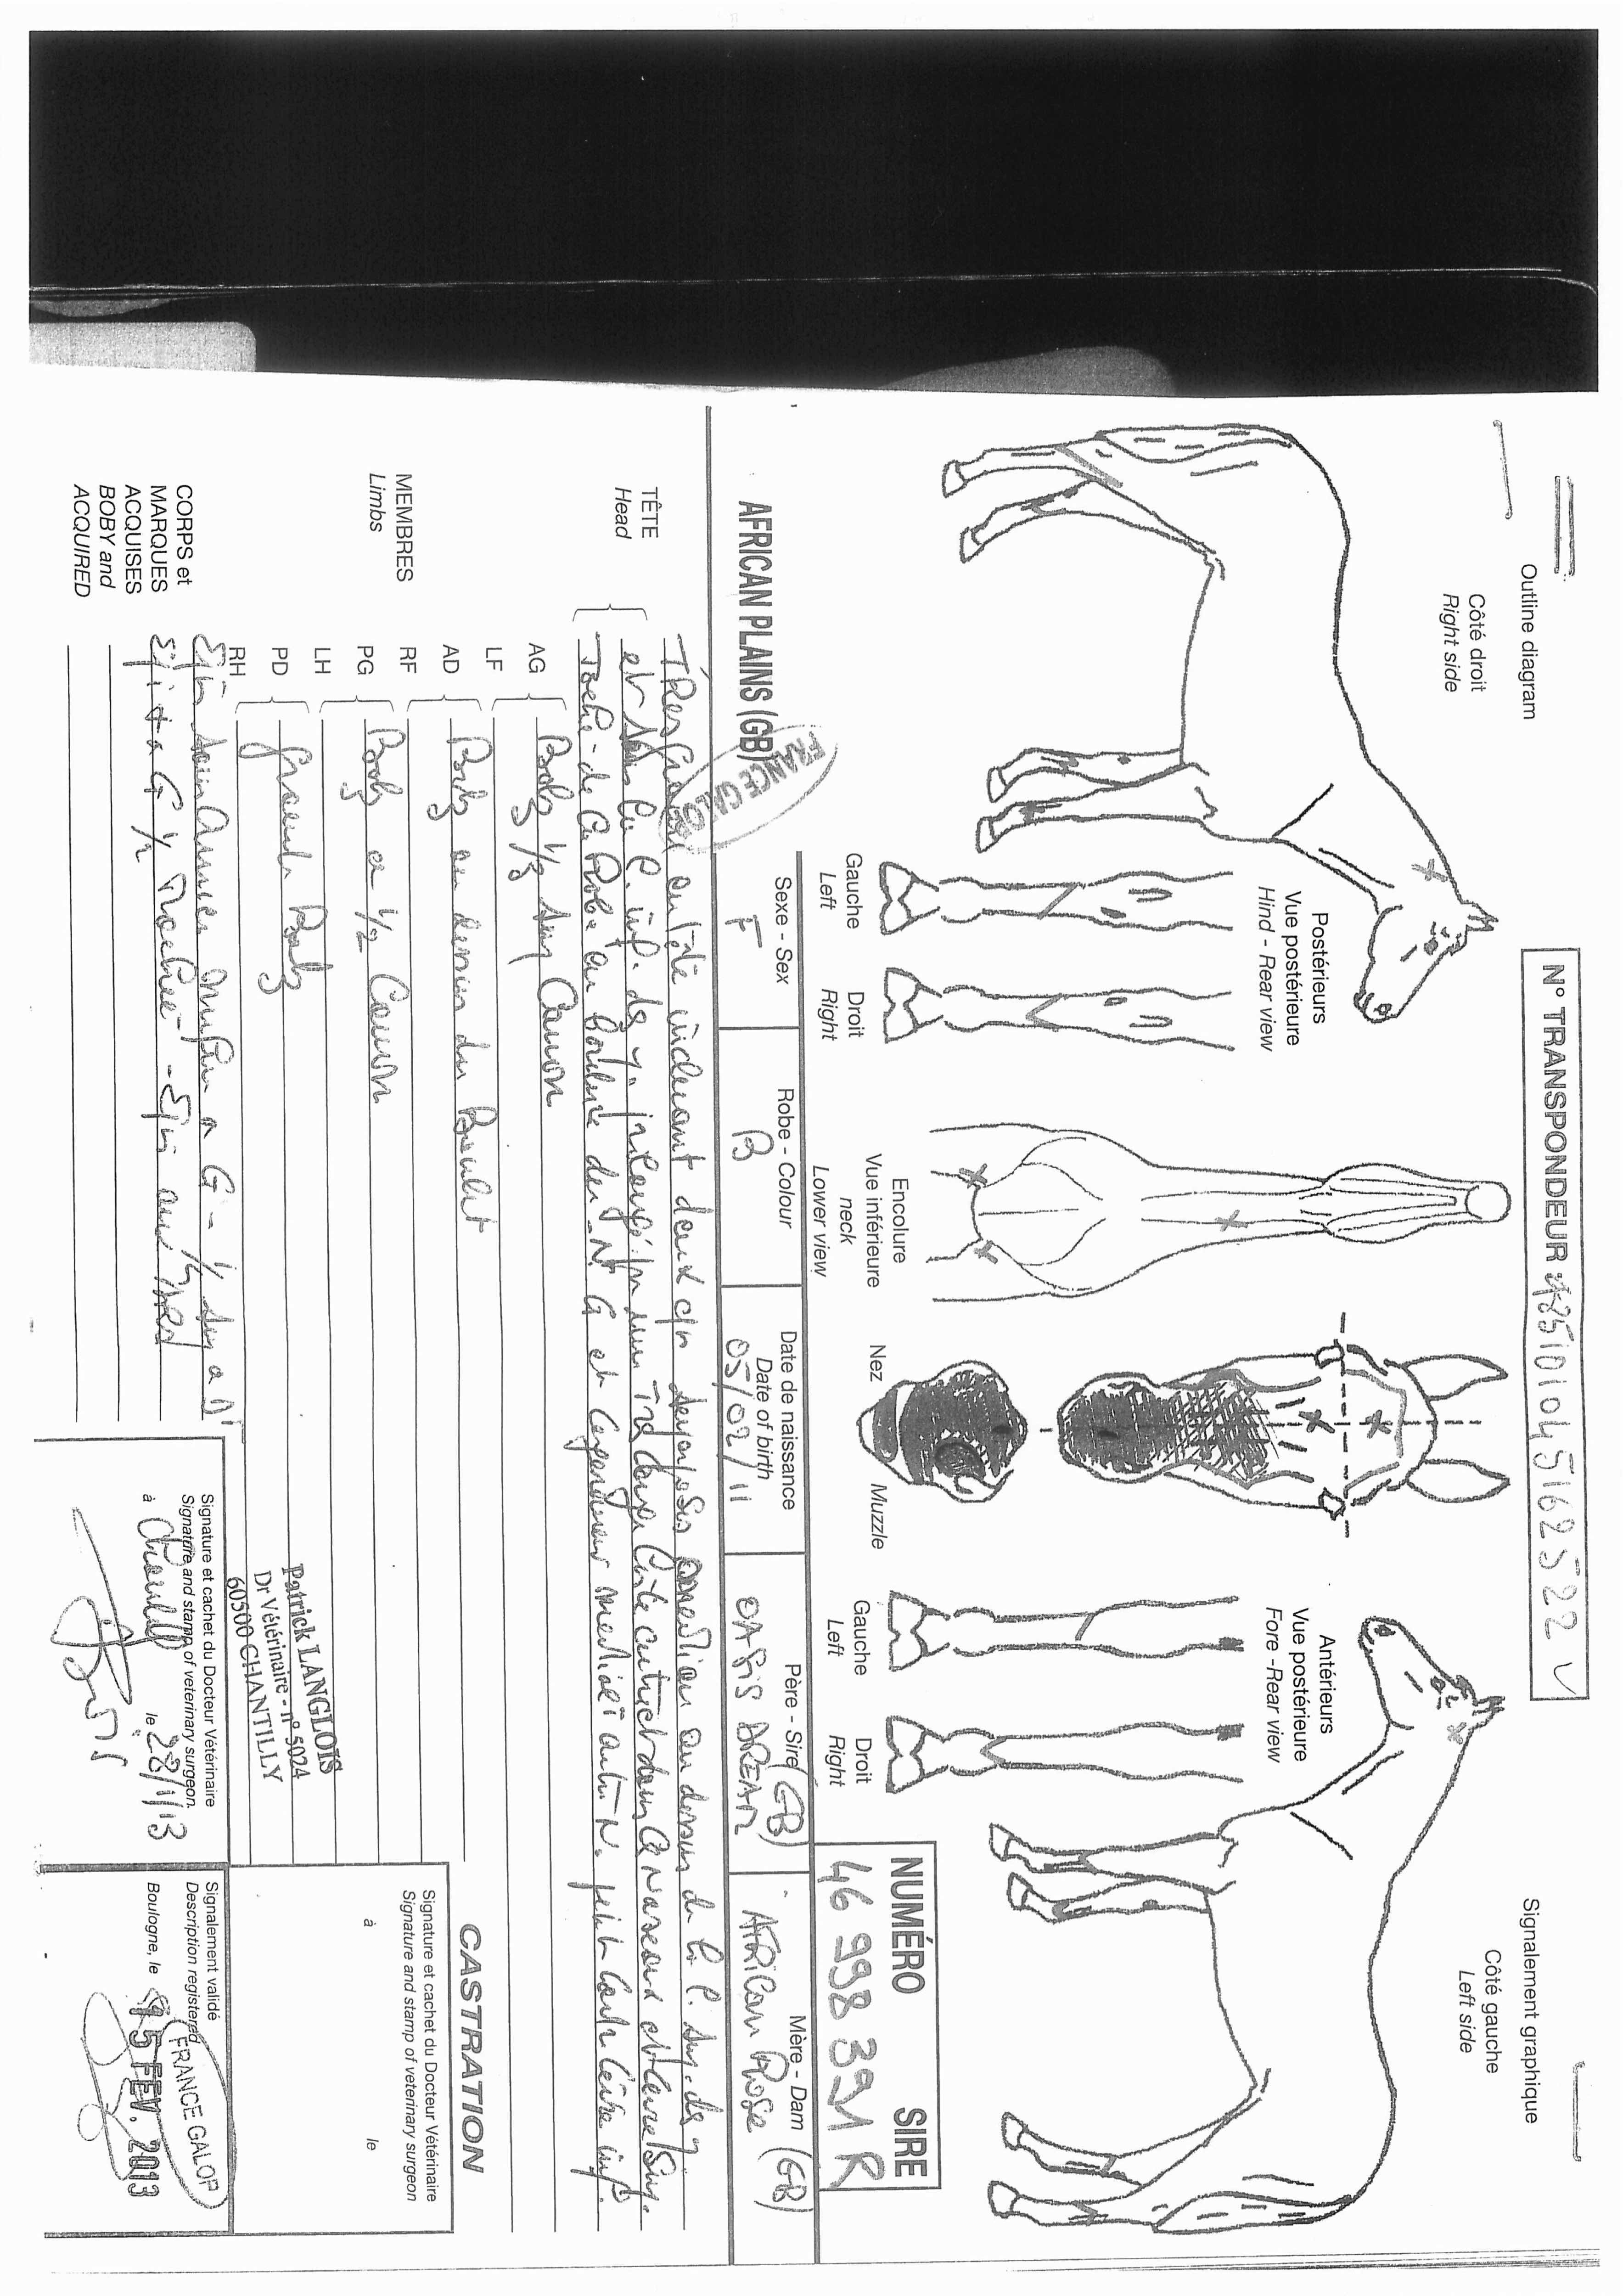 Outline diagram
Signalement graphique
Côté droit
Right side
N° TRANSPONDEUR 985101045162522 V
Côté gauche
Left side
Postérieurs
Vue postérieure
Hind - Rear view
Antérieurs
Vue postérieure
Fore -Rear view
Gauche
Left
Droit
Right
Encolure
Vue inférieure
neck
Lower view
Nez
Muzzle
Gauche
Left
Droit
Right
NUMÉRO SIRE
46 998 391 R
AFRICAN PLAINS (GB)
FRANCE GALOP
Sexe - Sex
F
Robe - Colour
B
Date de naissance
Date of birth
05/02/11
Père - Sire (GB)
OASIS DREAM
Mère - Dam (GB)
AFRICAN ROSE
TÊTE
Head
Très Grande en tête incluant deux épis superposés médian au dessus de la l. sup. des y.
et sur la l. inf. des y. prolongé par une large liste dans naseaux et lèvre sup.
Tache de la Robe au bord du N G et lèvre inf.
MEMBRES
Limbs
AG
LF
Balz 1/3 sup Canon
AD
RF
Balz au dessus du Boulet
PG
LH
Balz a 1/2 Canon
PD
RH
Grande Balz
CASTRATION
Signature et cachet du Docteur Vétérinaire
Signature and stamp of veterinary surgeon
à
le
CORPS et
MARQUES
ACQUISES
BOBY and
ACQUIRED
a G 1/2
Patrick LANGLOIS
Dr Vétérinaire - n° 5024
60500 CHANTILLY
Signature et cachet du Docteur Vétérinaire
Signature and stamp of veterinary surgeon.
à Chantilly le 28/1/13
Signalement validé
Description registered
FRANCE GALOP
Boulogne, le 15 FEV. 2013